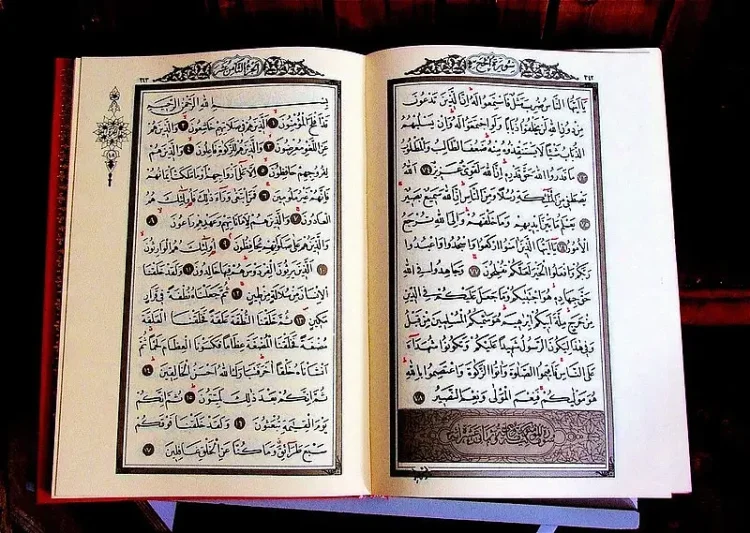 ٣٤٢
سورة الحج
يَا أَيُّهَا النَّاسُ ضُرِبَ مَثَلٌ فَاسْتَمِعُوا لَهُ إِنَّ الَّذِينَ تَدْعُونَ
مِنْ دُونِ اللَّهِ لَنْ يَخْلُقُوا ذُبَابًا وَلَوِ اجْتَمَعُوا لَهُ وَإِنْ يَسْلُبْهُمُ
الذُّبَابُ شَيْئًا لَا يَسْتَنْقِذُوهُ مِنْهُ ضَعُفَ الطَّالِبُ وَالْمَطْلُوبُ
٧٣ مَا قَدَرُوا اللَّهَ حَقَّ قَدْرِهِ إِنَّ اللَّهَ لَقَوِيٌّ عَزِيزٌ ٧٤ اللَّهُ
يَصْطَفِي مِنَ الْمَلٰئِكَةِ رُسُلًا وَمِنَ النَّاسِ إِنَّ اللَّهَ سَمِيعٌ بَصِيرٌ
٧٥ يَعْلَمُ مَا بَيْنَ أَيْدِيهِمْ وَمَا خَلْفَهُمْ وَإِلَى اللَّهِ تُرْجَعُ
الْأُمُورُ ٧٦ يَا أَيُّهَا الَّذِينَ آمَنُوا ارْكَعُوا وَاسْجُدُوا وَاعْبُدُوا
رَبَّكُمْ وَافْعَلُوا الْخَيْرَ لَعَلَّكُمْ تُفْلِحُونَ ٧٧ وَجَاهِدُوا فِي اللَّهِ
حَقَّ جِهَادِهِ هُوَ اجْتَبٰيكُمْ وَمَا جَعَلَ عَلَيْكُمْ فِي الدِّينِ
مِنْ حَرَجٍ مِلَّةَ أَبِيكُمْ إِبْرٰهِيمَ هُوَ سَمّٰيكُمُ الْمُسْلِمِينَ مِنْ قَبْلُ
وَفِي هٰذَا لِيَكُونَ الرَّسُولُ شَهِيدًا عَلَيْكُمْ وَتَكُونُوا شُهَدَاءَ
عَلَى النَّاسِ فَأَقِيمُوا الصَّلٰوةَ وَآتُوا الزَّكٰوةَ وَاعْتَصِمُوا بِاللَّهِ
هُوَ مَوْلٰيكُمْ فَنِعْمَ الْمَوْلَى وَنِعْمَ النَّصِيرُ ٧٨
٣٤٣
الجزء الثامن عشر
بِسْمِ اللَّهِ الرَّحْمٰنِ الرَّحِيمِ
قَدْ أَفْلَحَ الْمُؤْمِنُونَ ١ الَّذِينَ هُمْ فِي صَلَاتِهِمْ خَاشِعُونَ ٢ وَالَّذِينَ هُمْ
عَنِ اللَّغْوِ مُعْرِضُونَ ٣ وَالَّذِينَ هُمْ لِلزَّكٰوةِ فَاعِلُونَ ٤ وَالَّذِينَ هُمْ
لِفُرُوجِهِمْ حَافِظُونَ ٥ إِلَّا عَلَى أَزْوَاجِهِمْ أَوْ مَا مَلَكَتْ أَيْمَانُهُمْ
فَإِنَّهُمْ غَيْرُ مَلُومِينَ ٦ فَمَنِ ابْتَغَى وَرَاءَ ذٰلِكَ فَأُولٰئِكَ هُمُ
الْعَادُونَ ٧ وَالَّذِينَ هُمْ لِأَمَانَاتِهِمْ وَعَهْدِهِمْ رَاعُونَ ٨
وَالَّذِينَ هُمْ عَلَى صَلَوَاتِهِمْ يُحَافِظُونَ ٩ أُولٰئِكَ هُمُ الْوَارِثُونَ
١٠ الَّذِينَ يَرِثُونَ الْفِرْدَوْسَ هُمْ فِيهَا خَالِدُونَ ١١ وَلَقَدْ خَلَقْنَا
الْإِنْسَانَ مِنْ سُلَالَةٍ مِنْ طِينٍ ١٢ ثُمَّ جَعَلْنَاهُ نُطْفَةً فِي قَرَارٍ
مَكِينٍ ١٣ ثُمَّ خَلَقْنَا النُّطْفَةَ عَلَقَةً فَخَلَقْنَا الْعَلَقَةَ
مُضْغَةً فَخَلَقْنَا الْمُضْغَةَ عِظَامًا فَكَسَوْنَا الْعِظَامَ لَحْمًا ثُمَّ
أَنْشَأْنَاهُ خَلْقًا آخَرَ فَتَبَارَكَ اللَّهُ أَحْسَنُ الْخَالِقِينَ ١٤
ثُمَّ إِنَّكُمْ بَعْدَ ذٰلِكَ لَمَيِّتُونَ ١٥ ثُمَّ إِنَّكُمْ
يَوْمَ الْقِيٰمَةِ تُبْعَثُونَ ١٦ وَلَقَدْ خَلَقْنَا فَوْقَكُمْ
سَبْعَ طَرَائِقَ وَمَا كُنَّا عَنِ الْخَلْقِ غَافِلِينَ ١٧